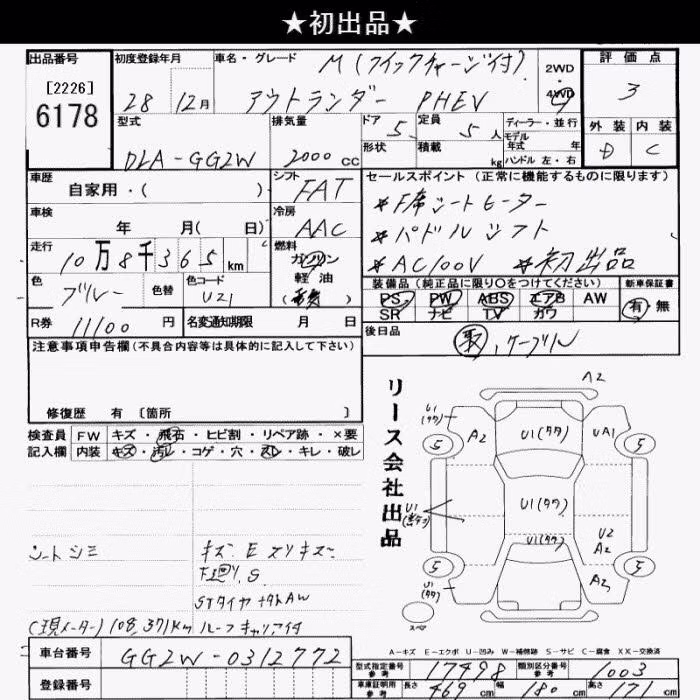 ★初出品★
出品番号
[2226]
6178
初度登録年月
28 12月
車名・グレード
M(クイックチャージ付)
アウトランダー PHEV
2WD
4WD
評価点
3
外装 内装
D C
型式
DLA-GG2W
排気量
2000cc
ドア 5
形状
定員 5人
積載 kg
ディーラー・並行
モデル年式 年
ハンドル 左・右
車歴
自家用・( )
シフト
FAT
車検
年 月( 日)
冷房
AAC
走行
10万8千365km
燃料
ガソリン
軽油
色
ブルー
色替
色コード
U21
R券 11100円
名変通知期限 月 日
セールスポイント(正常に機能するものに限ります)
*F席シートヒーター
*パドルシフト
*AC100V *初出品
装備品(純正品に限り○をつけてください)
新車保証書
PS PW ABS エアB AW
SR ナビ TV カワ
有 無
後日品
取,ケーブル
注意事項申告欄(不具合内容等は具体的に記入して下さい)
修復歴 有[箇所 ]
検査員記入欄
FW キズ・飛石・ヒビ割・リペア跡・×要
内装 キズ・汚レ・コゲ・穴・スレ・キレ・破レ
シートシミ
キズ Eスリキズ
下廻りS
STタイヤ+外AW
(現メーター)108,371km ルーフキャリア付
車台番号
GG2W-0312772
登録番号
リース会社出品
A2
U1(タワ)
5
A2
U1(タワ)
UA1
5
U1
U1(タワ)
U1(タワ)
U2
A2
5
5
U1(タワ)
A2
スペア
A-キズ E-エクボ U-凹み W-補修跡 S-サビ C-腐食 XX-交換済
型式指定番号 参考
17498
類別区分番号 参考
1003
車庫証明用 参考
長さ 469cm
幅 180cm
高さ 171cm